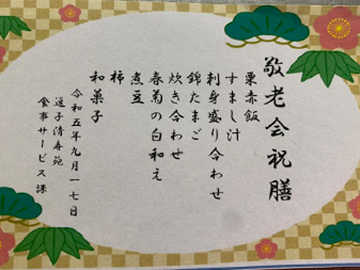 敬老会祝膳
栗赤飯
すまし汁
刺身盛り合わせ
錦たまご
炊き合わせ
春菊の白和え
煮豆
柿
和菓子
令和五年九月一七日
逗子清寿苑
食事サービス課